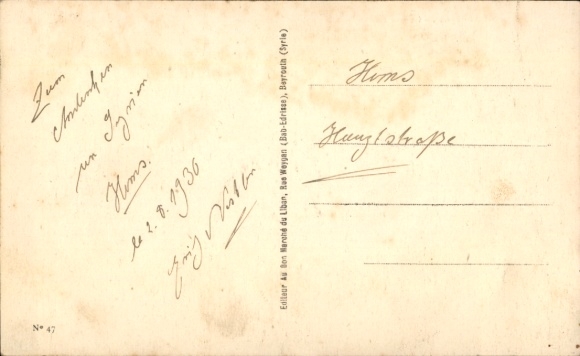 Zum
Andenken
an Syrien
Homs.
le 2.8.1936
Editeur Au Bon Marché du Liban, Rue Weygan (Bab-Edrisse), Beyrouth (Syrie)
Homs
Hauptstraße
Nº 47